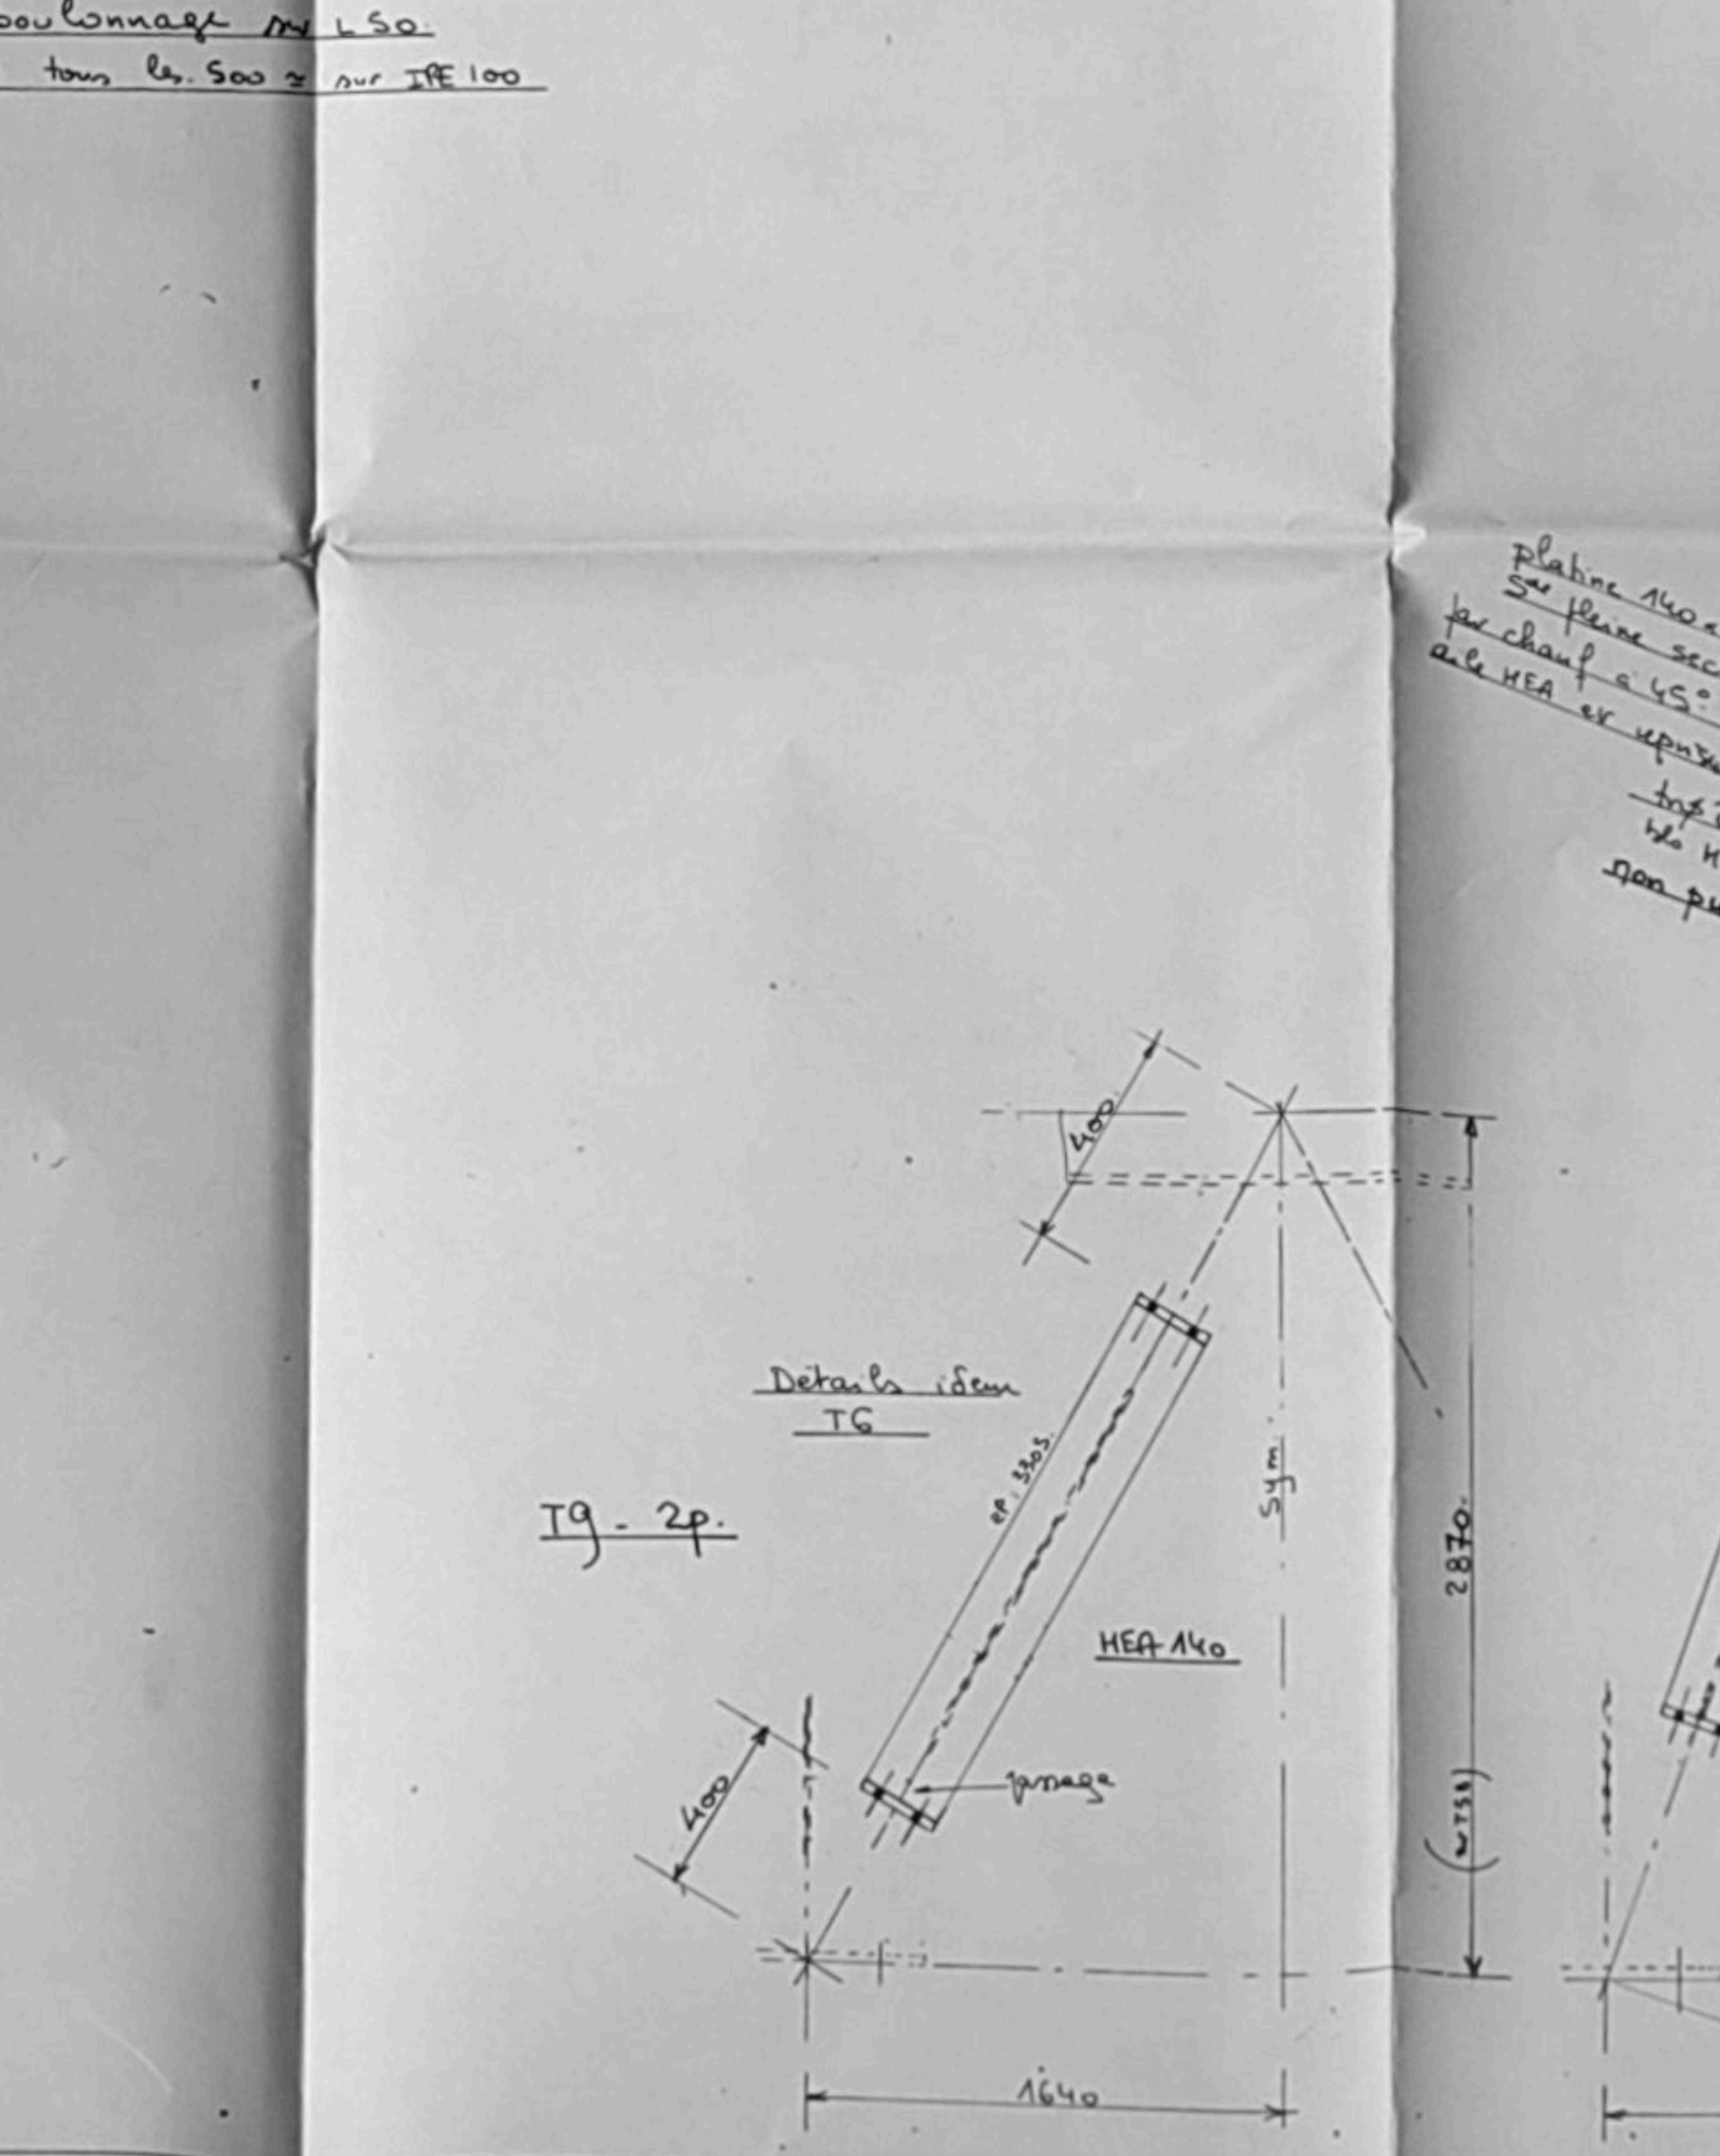 boulonnage sur L50.
tous les. 500 ≃ sur IPE 100
platine 140
Sur pleine sec
par chanf à 45°
aile HEA et
non pu
400.
Détails idem
T6
ep. 3305.
Sym.
T9 - 2p.
2870.
HEA 140
400
1640